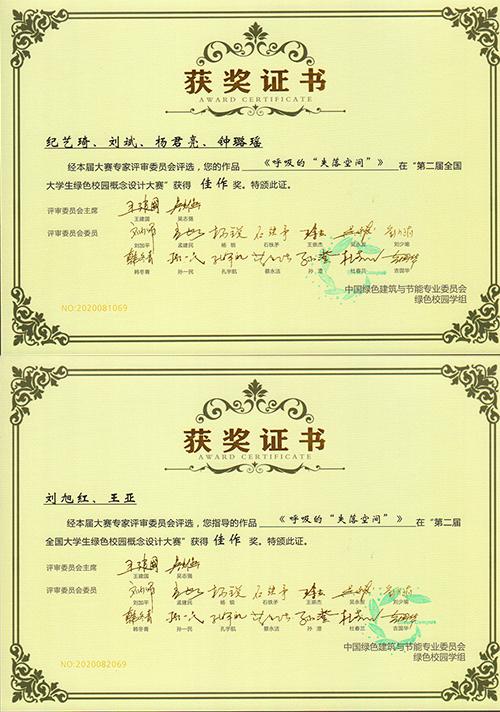 获奖证书
AWARD CERTIFICATE
纪艺琦、刘斌、杨君亮、钟璐瑶
经本届大赛专家评审委员会评选，您的作品 《呼吸的“失落空间”》 在“第二届全国
大学生绿色校园概念设计大赛”获得 佳作 奖。特颁此证。
评审委员会主席
王建国 吴志强
评审委员会委员
刘加平 孟建民 杨锐 石铁矛 王崇杰 吴永发 刘少瑜
韩冬青 孙一民 孔宇航 蔡永洁 孙澄 杜春兰 吉国华
中国绿色建筑与节能专业委员会
绿色校园学组
NO:2020081069
获奖证书
AWARD CERTIFICATE
刘旭红、王亚
经本届大赛专家评审委员会评选，您指导的作品 《呼吸的“失落空间”》 在“第二届
全国大学生绿色校园概念设计大赛”获得 佳作 奖。特颁此证。
评审委员会主席
王建国 吴志强
评审委员会委员
刘加平 孟建民 杨锐 石铁矛 王崇杰 吴永发 刘少瑜
韩冬青 孙一民 孔宇航 蔡永洁 孙澄 杜春兰 吉国华
中国绿色建筑与节能专业委员会
绿色校园学组
NO:2020082069